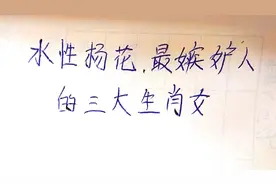 水性杨花，最嫉妒人
的三大生肖女